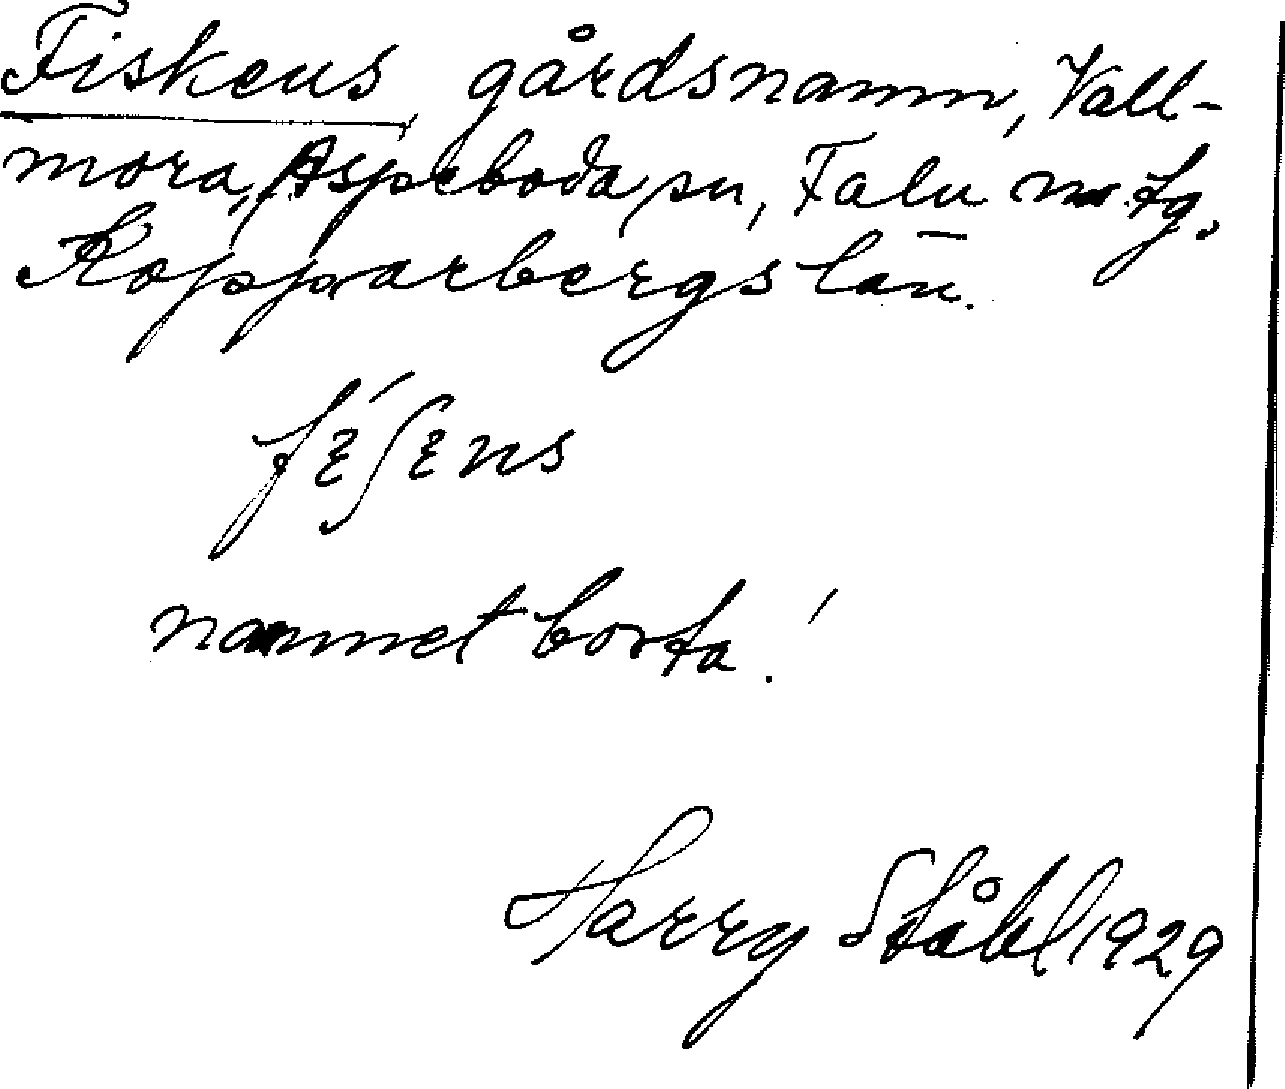 Fiskens gårdsnamn, Vall-
mora, Aspeboda sn, Falu n. tg.
Kopparbergs län.
fɛ́ʃɛns
namnet borta!
Harry Ståhl 1929